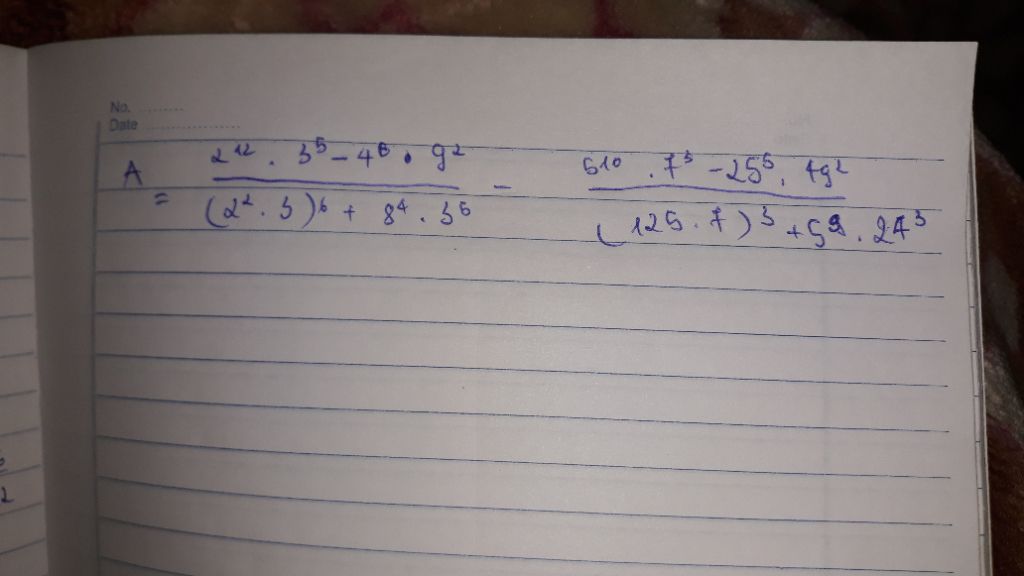 No. ..........
Date ....................
A = \frac{2^{12} . 3^5 - 4^6 . 9^2}{(2^2 . 3)^6 + 8^4 . 3^5} - \frac{5^{10} . 7^3 - 25^5 . 49^2}{(125 . 7)^3 + 5^9 . 27^3}